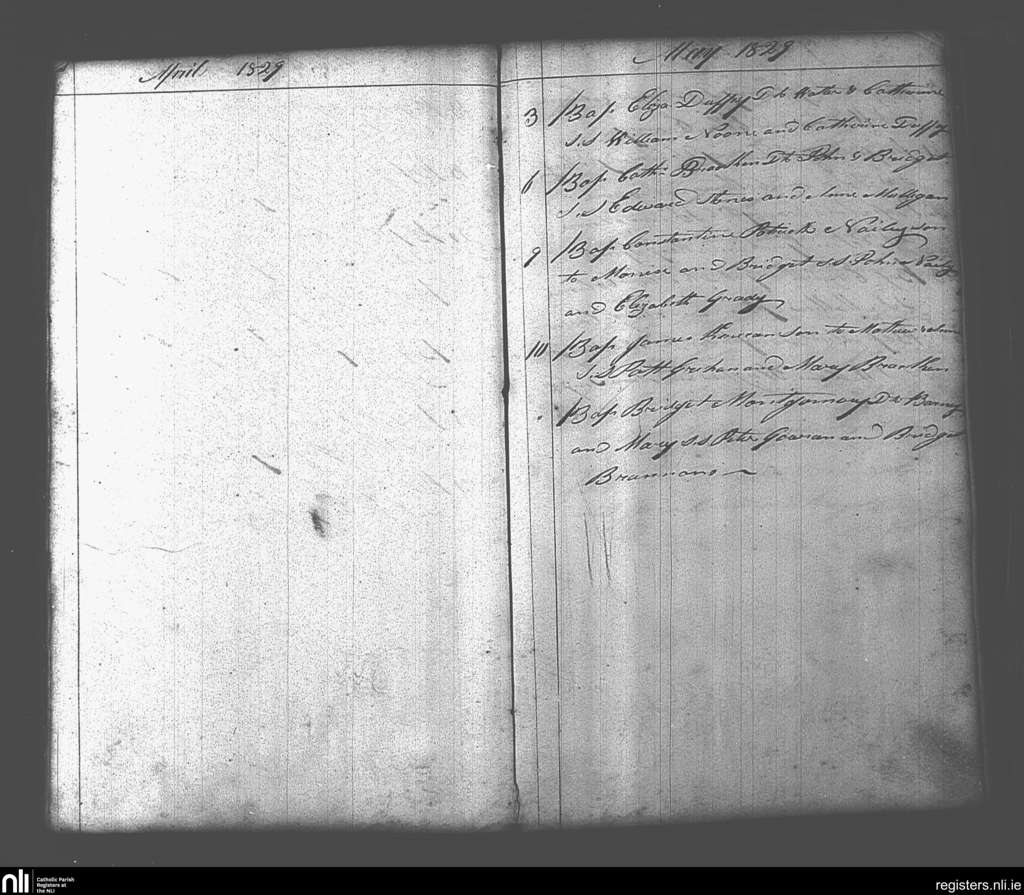 April 1829
May 1829
3 Bap. Eliza Duffy D to Walter & Catherine
S.S William Noone and Catherine Duffy
6 Bap Cath: Dr to John & Bridget
S.S Edward and Anne Mulligan
9 Bap Constantine Patrick son
to and Bridget S.S John
and Elizabeth Grady
10 Bap James son to Mathew
S.S Patt and Mary
Bap Bridget Montgomery D to Barny
and Mary S.S Peter Gowran and Bridget
nli
Catholic Parish
Registers at
the NLI
registers.nli.ie